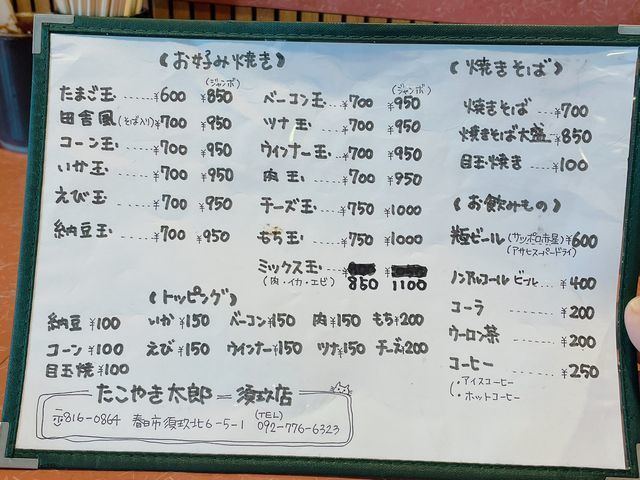 (お好み焼き)
(ジャンボ)
たまご玉......¥600 ¥850
田舎風(そば入り)¥700 ¥950
コーン玉......¥700 ¥950
いか玉......¥700 ¥950
えび玉......¥700 ¥950
納豆玉......¥700 ¥950
(ジャンボ)
ベーコン玉...¥700 ¥950
ツナ玉......¥700 ¥950
ウインナー玉...¥700 ¥950
肉玉......¥700 ¥950
チーズ玉......¥750 ¥1000
もち玉......¥750 ¥1000
ミックス玉......
(肉・イカ・エビ) 850 1100
(トッピング)
納豆¥100 いか¥150 ベーコン¥150 肉¥150 もち¥200
コーン¥100 えび¥150 ウインナー¥150 ツナ¥150 チーズ¥200
目玉焼¥100
たこやき太郎=須玖店
〒816-0864 春日市須玖北6-5-1 (TEL) 092-776-6323
(焼きそば)
焼きそば......¥700
焼きそば大盛...¥850
目玉焼き......¥100
(お飲みもの)
瓶ビール(サッポロ赤星)¥600
(アサヒスーパードライ)
ノンアルコールビール...¥400
コーラ......¥200
ウーロン茶......¥200
コーヒー......¥250
(・アイスコーヒー
・ホットコーヒー